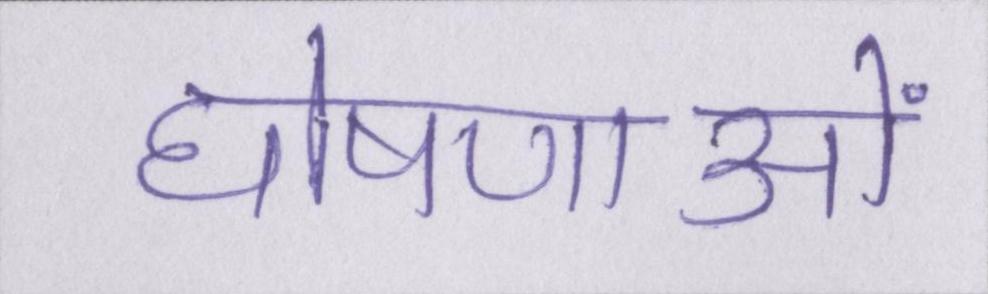 घोषणाओं